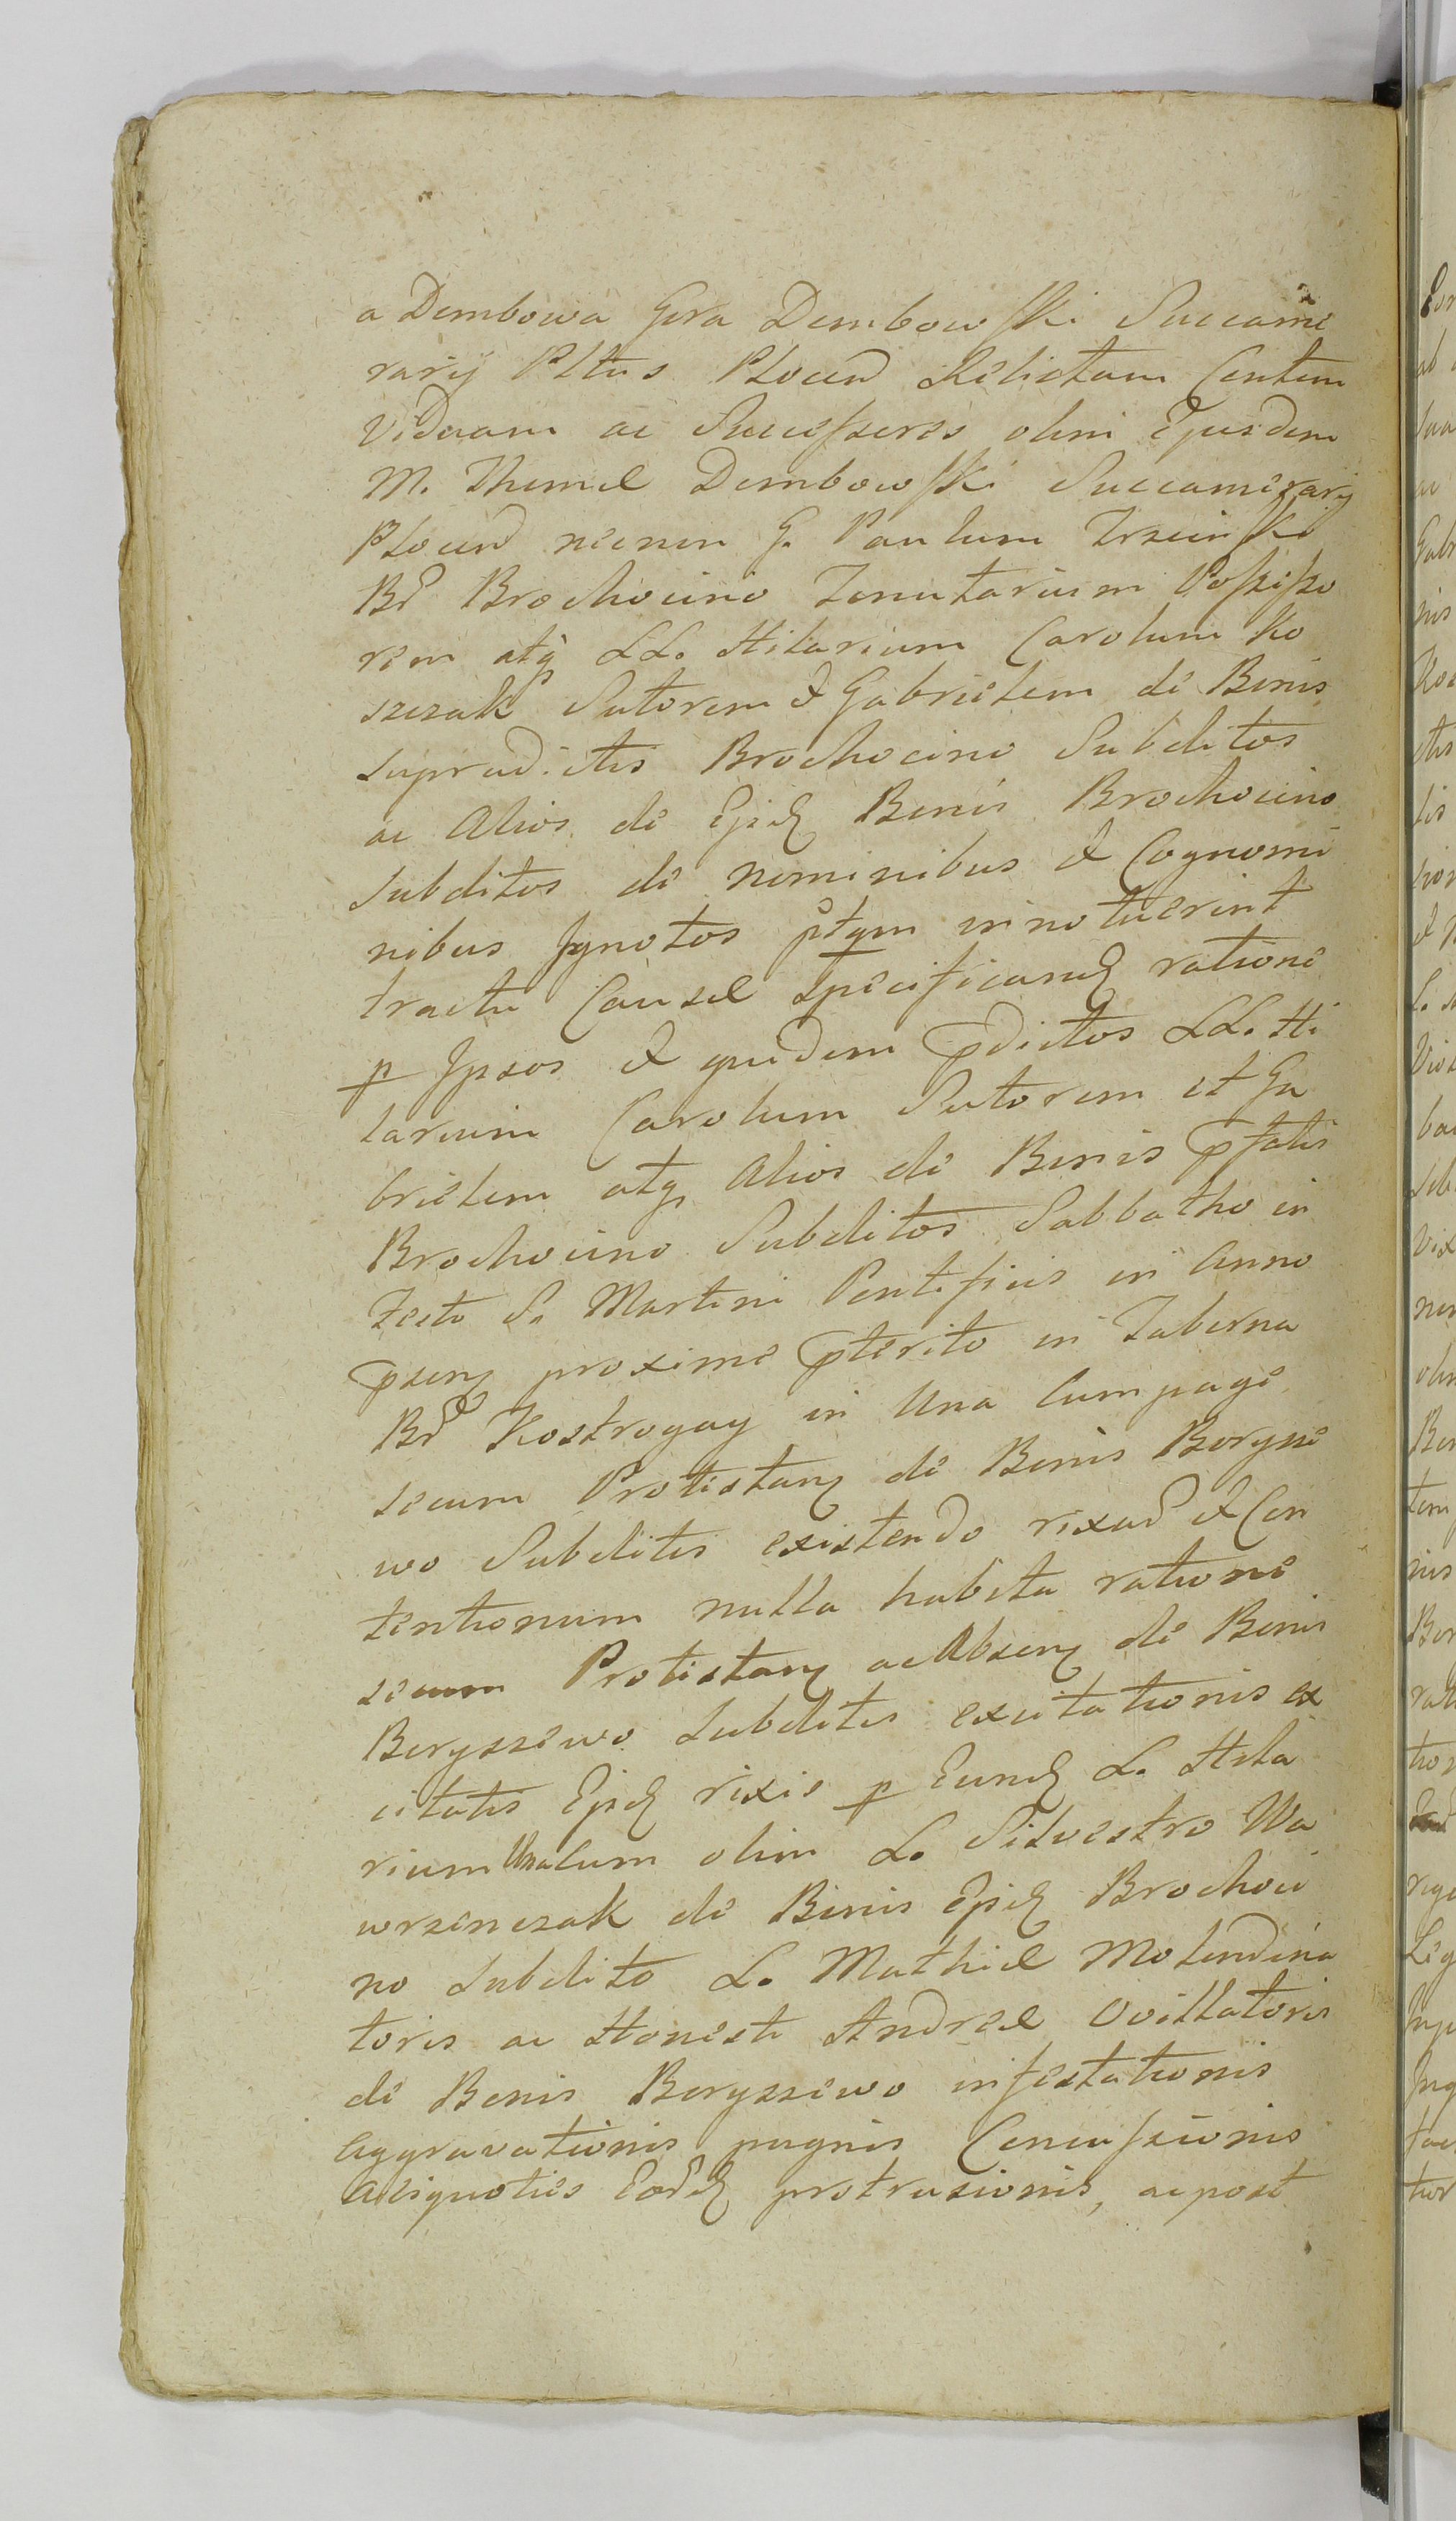 a Dembowa Gora Dembowski Succame
rarij Pltus Plocen Relictam Consortem
Viduam ac Successores olim Ejusdem
M. Thomæ Dembowski Succamerarij
Plocen necnon G. Paulum Trzcinski
Br̃ Brochocino Tenutarium Possesso
rem atq LL. Hilarium Carolum Ko
szczak Sutorem & Gabrielem de Bonis
supradictis Brochocino Subditos
ac Alios de Ejsd Bonis Brochocino
subditos de nominibus & Cognomi
nibus Ignotos ptqm innotuerint
tractu Causæ specificand ratione
p Ipsos & quidem pdictos LL. Hi
larium Carolum Sutorem et Ga
brielem atq Alios de Bonis pfatis
Brochocino Subditos Sabbatho in
Festo S. Martini Pontificis in Anno
psenz proxime pterito in Taberna
Br̃ Kostrogay in Una Compage
secum Protestanz de Bonis Borysze
wo Subditis existendo rixar & Con
tentionum nulla habita ratione
secum Protestanz ac Absenz de Bonis
Boryszewo Subditis excitationis ex
citatis Ejsd rixis p Eund L. Hila
rium Malum olim L. Silvestro Wa
wrzenczak de Bonis Ejsd Brochoci
no Subdito L. Mathiæ Molendina
toris ac Honesti Andreæ Ovillatoris
de Bonis Boryszewo infestationis
Aggravationis pugnis Concussionis
Aliquoties Eord protrusionis, ac post